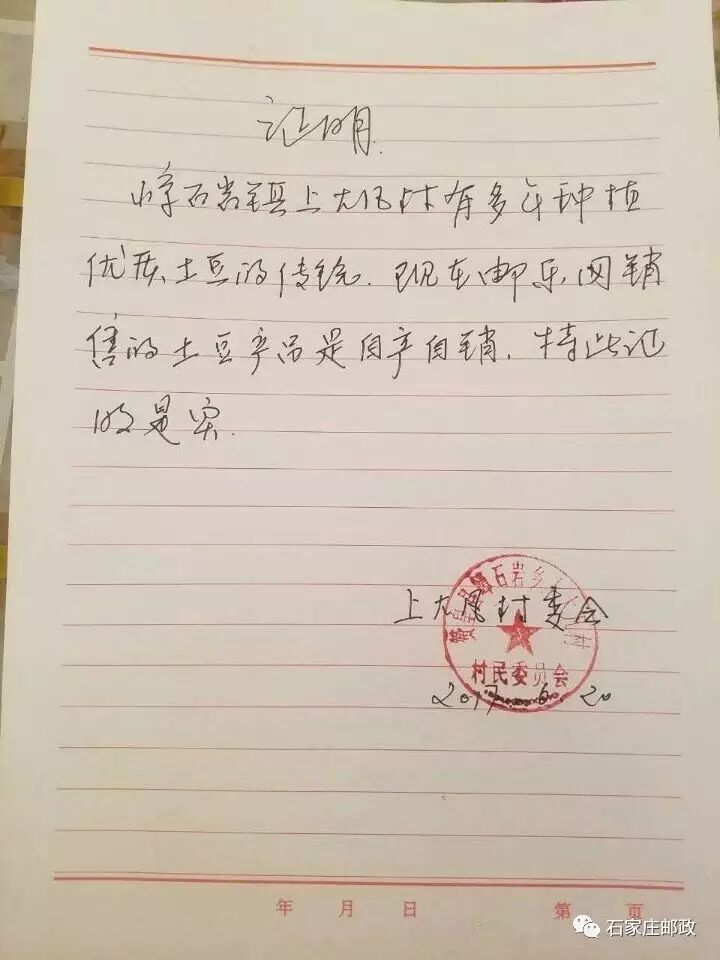 证明.
嶂石岩镇上大凤村有多年种植
优质土豆的传统.现在邮乐网销
售的土豆产品是自产自销.特此证
明是实.
赞皇县嶂石岩乡
上大凤村委会
村民委员会
2017.6.20
年 月 日 第 页
石家庄邮政